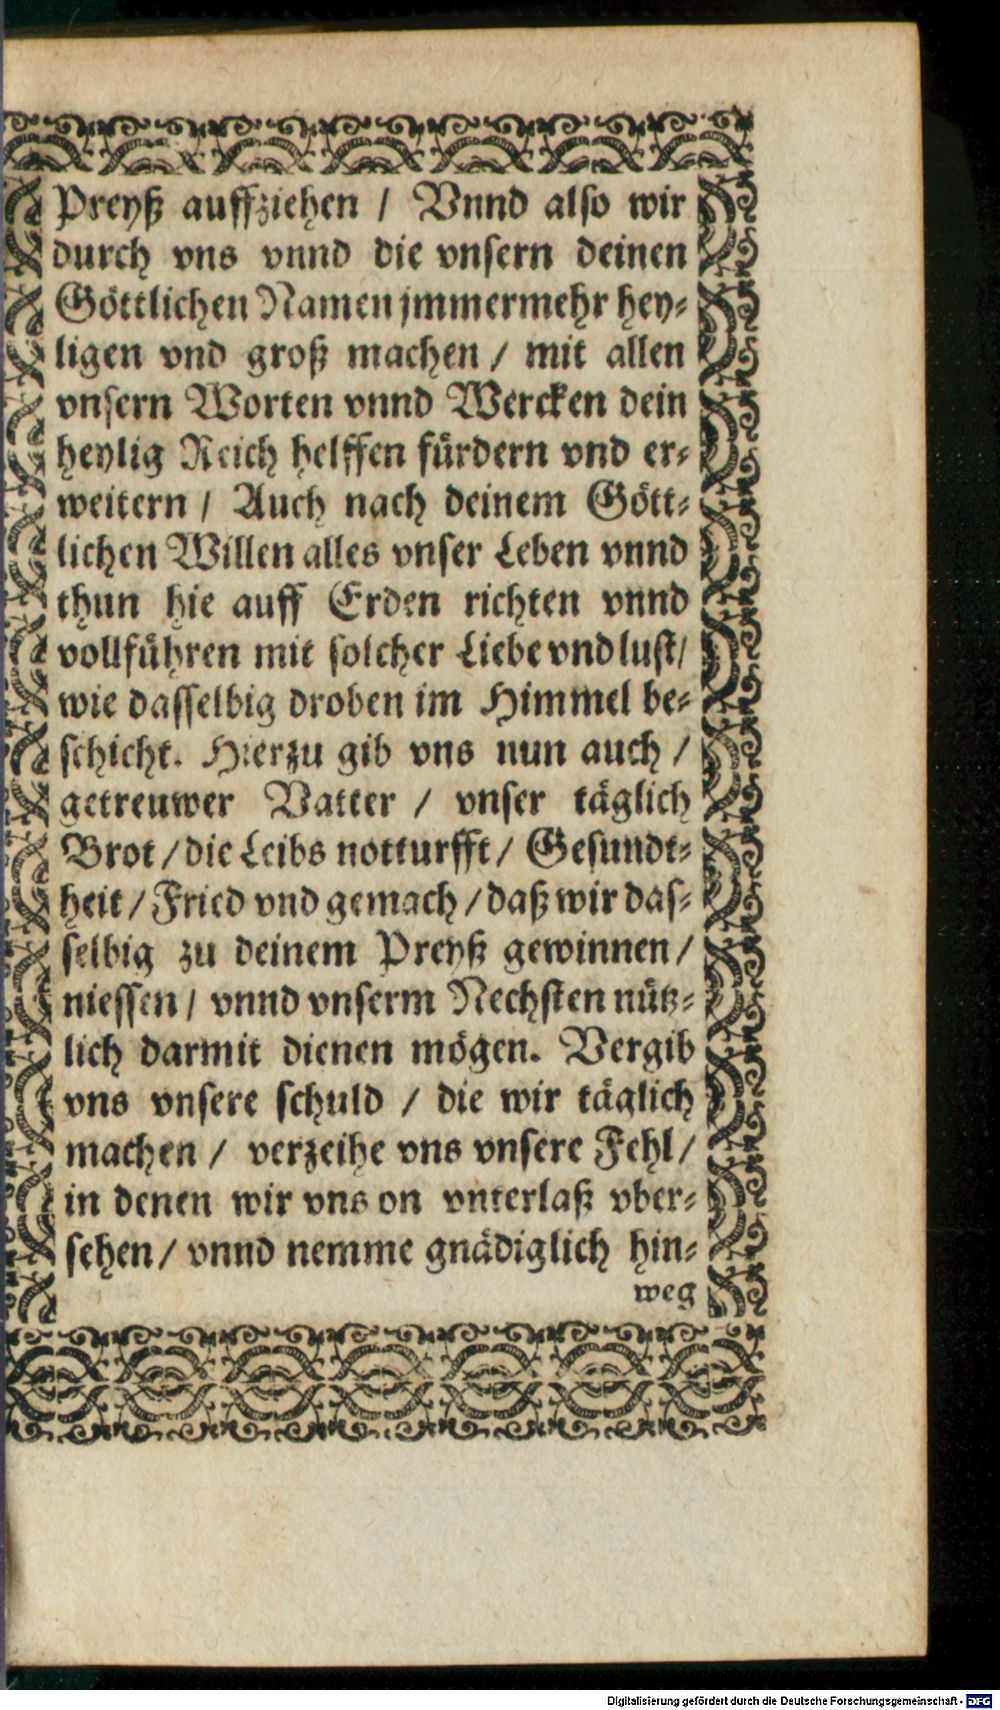 Preyß auffziehen / Vnnd also wir
durch vns vnnd die vnsern deinen
Göttlichen Namen jmmermehr hey-
ligen vnd groß machen / mit allen
vnsern Worten vnnd Wercken dein
heylig Reich helffen fürdern vnd er-
weitern / Auch nach deinem Gött-
lichen Willen alles vnser Leben vnnd
thun hie auff Erden richten vnnd
vollführen mit solcher Liebe vnd lust/
wie dasselbig droben im Himmel be-
schicht. Hierzu gib vns nun auch /
getreuwer Vatter / vnser täglich
Brot / die Leibs notturfft / Gesundt-
heit / Fried vnd gemach / daß wir das-
selbig zu deinem Preyß gewinnen /
niessen / vnnd vnserm Nechsten nütz-
lich darmit dienen mögen. Vergib
vns vnsere schuld / die wir täglich
machen / verzeihe vns vnsere Fehl /
in denen wir vns on vnterlaß vber-
sehen / vnnd nemme gnädiglich hin-
weg
Digitalisierung gefördert durch die Deutsche Forschungsgemeinschaft - DFG